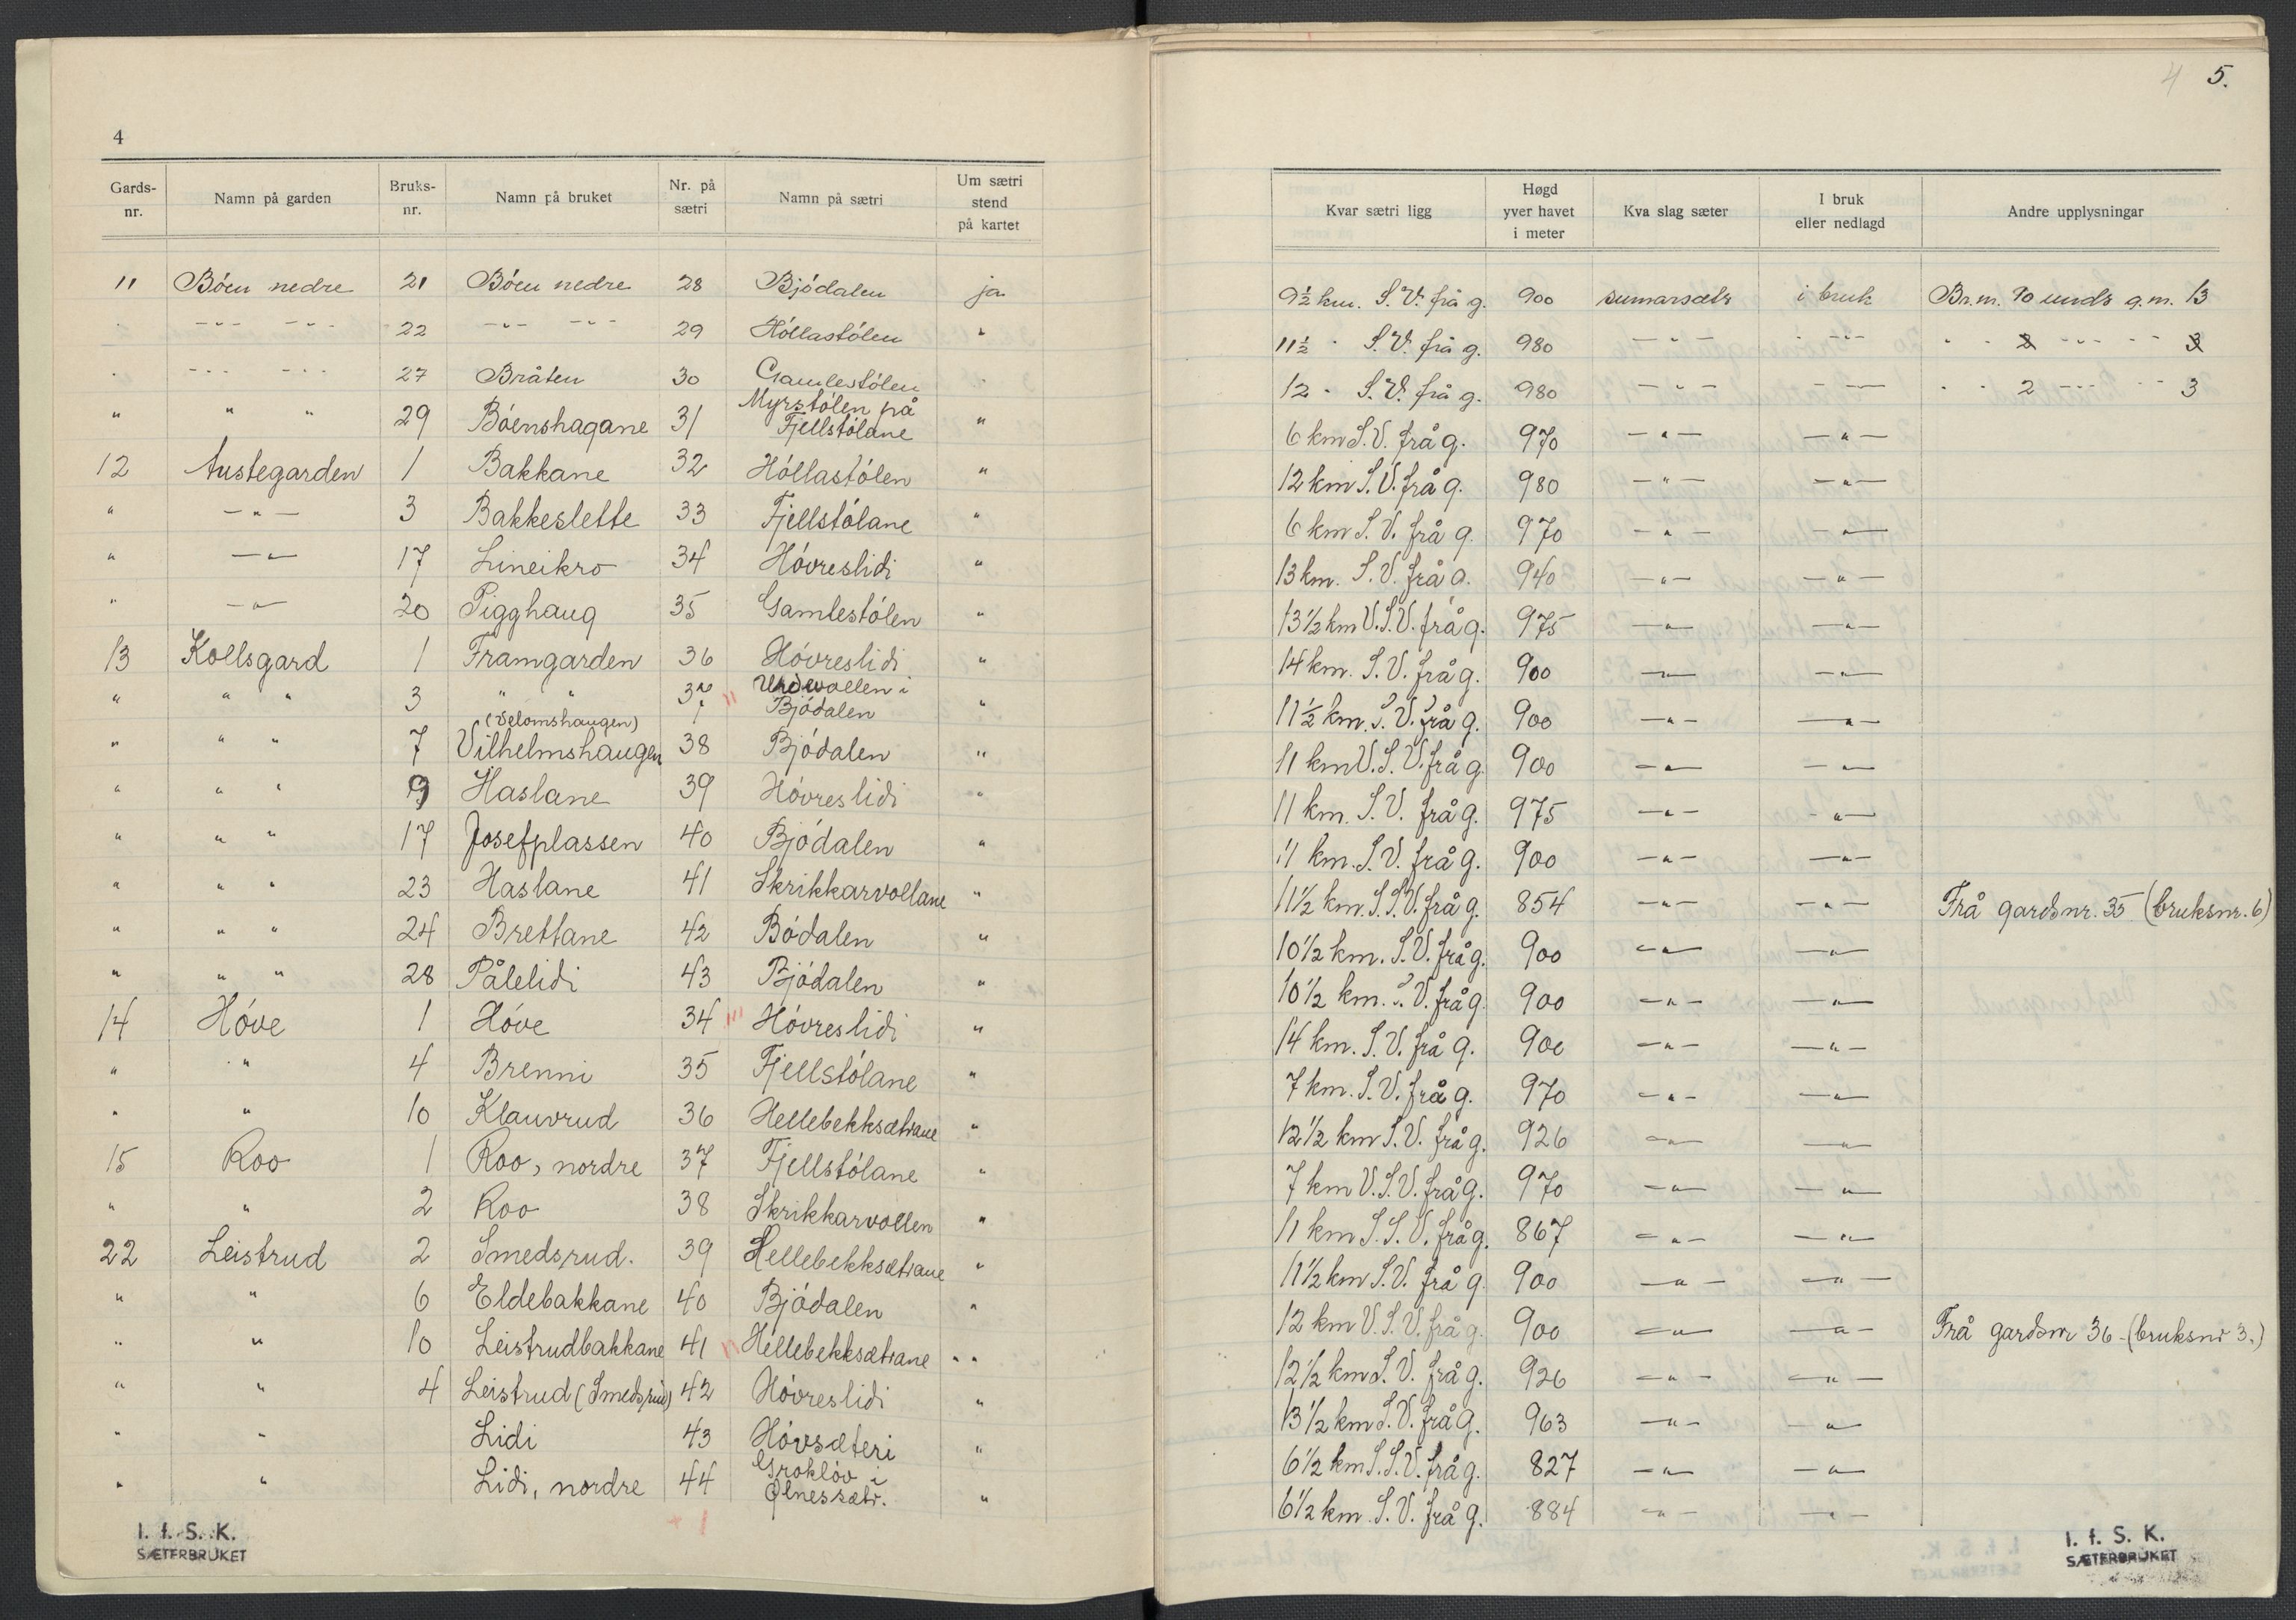 4
Gards-nr. | Namn på garden | Bruks-nr. | Namn på bruket | Nr. på sætri | Namn på sætri | Um sætri stend på kartet
11 | Bóen nedre | 21 | Bóen nedre | 28 | Bjódalen | ja
" | -"- -"- | 22 | -"- -"- | 29 | Hóllastólen | "
" | -"- -"- | 27 | Bråten | 30 | Gamlestólen | "
" | " " | 29 | Bóenshagane | 31 | Myrstólen på Fjellstólane | "
12 | Austegarden | 1 | Bakkane | 32 | Hóllastólen | "
" | -"- | 3 | Bakkeslette | 33 | Fjellstólane | "
" | -"- | 17 | Lineikro | 34 | Hóvreslidi | "
" | -"- | 20 | Pigghaug | 35 | Gamlestólen | "
13 | Kollsgard | 1 | Framgarden | 36 | Hóvreslidi | "
" | " " | 3 | " " | 37 | i Bjódalen | "
" | " " | 7 | (Velomshaugen) Vilhelmshaugen | 38 | Bjódalen | "
" | " " | 9 | Haslane | 39 | Hóvreslidi | "
" | " " | 17 | Josefplassen | 40 | Bjódalen | "
" | " " | 23 | Haslane | 41 | Skrikkarvollane | "
" | " " | 24 | Brettane | 42 | Bódalen | "
" | " " | 28 | Pålelidi | 43 | Bjódalen | "
14 | Hóve | 1 | Hóve | 34 | Hóvreslidi | "
" | " | 4 | Brenni | 35 | Fjellstólane | "
" | " | 10 | Klauvrud | 36 | Hellebekksætrane | "
15 | Roo | 1 | Roo, nordre | 37 | Fjellstólane | "
" | " | 2 | Roo | 38 | Skrikkarvollen | "
22 | Leistrud | 2 | Smedsrud. | 39 | Hellebekksætrane | "
" | " | 6 | Eldebakkane | 40 | Bjódalen | "
" | " | 10 | Leistrudbakkane | 41 | Hellebekksætrane | "
" | " | 4 | Leistrud (Smedsrud) | 42 | Hóvreslidi | "
" | " | | Lidi | 43 | Hóvsæteri | "
" | " | | Lidi, nordre | 44 | Groklóv i Ølnessætr. | "
+ 1
I. f. S. K.
SÆTERBRUKET
4 5.
Kvar sætri ligg | Høgd yver havet i meter | Kva slag sæter | I bruk eller nedlagd | Andre upplysningar
9½ km. S.V. frå g. | 900 | sumarsætr | i bruk | Br.m. 90 unds g.m. 13
11½ " S.V. frå g. | 980 | -"- | -"- | " " 2 -"- " 3
12 " S.V. frå g. | 980 | -"- | -"- | " " 2 -"- " 3
6 km S.V. frå g. | 970 | -"- | -"-
12 km S.V. frå g. | 980 | -"- | -"-
6 km S.V. frå g. | 970 | -"- | -"-
13 km. S.V. frå g. | 940 | -"- | -"-
13 1/2 km V.S.V. frå g. | 975 | -"- | -"-
14 km. S.V. frå g. | 900 | -"- | -"-
11 ½ km. S.V. frå g. | 900 | -"- | -"-
11 km V.S.V. frå g. | 900 | -"- | -"-
11 km. S.V. frå g. | 975 | -"- | -"-
11 km. S.V. frå g. | 900 | -"- | -"-
11 1/2 km. S.S.V. frå g. | 854 | -"- | -"- | Frå gardsnr. 35 (bruksnr. 6)
10 1/2 km. S.V. frå g. | 900 | -"- | -"-
10 1/2 km. S.V. frå g. | 900 | -"- | -"-
14 km. S.V. frå g. | 900 | -"- | -"-
7 km. S.V. frå g. | 970 | -"- | -"-
12 1/2 km S.V. frå g. | 926 | -"- | -"-
7 km V.S.V. frå g. | 970 | -"- | -"-
11 km S.S.V. frå g. | 867 | -"- | -"-
11 1/2 km S.V. frå g. | 900 | -"- | -"-
12 km V.S.V. frå g. | 900 | -"- | -"- | Frå gardsnr 36 - (bruksnr 3.)
12 1/2 km S.V. frå g. | 926 | -"- | -"-
13 1/2 km S.V. frå g. | 963 | -"- | -"-
6 1/2 km S.S.V. frå g. | 827 | -"- | -"-
6 1/2 km. S.V. frå g. | 884 | -"- | -"-
I. f. S. K.
SÆTERBRUKET